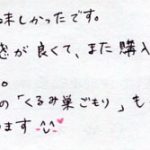 味しかったです。
感が良くて、また購入
。
の「くるみ巣ごもり」も
ます